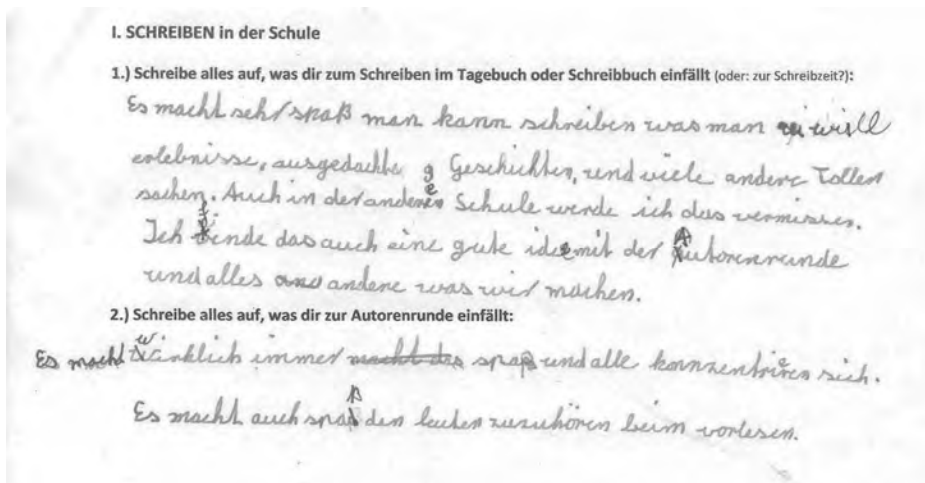 I. SCHREIBEN in der Schule
1.) Schreibe alles auf, was dir zum Schreiben im Tagebuch oder Schreibbuch einfällt (oder: zur Schreibzeit?):
Es macht sehr spaß man kann schreiben was man will
erlebnisse, ausgedachte Geschichten, und viele andere Tollen
sachen. Auch in der anderen Schule werde ich das vermissen.
Ich finde das auch eine gute idee mit der Autorenrunde
und alles andere was wir machen.
2.) Schreibe alles auf, was dir zur Autorenrunde einfällt:
Es macht wirklich immer macht das spaß und alle konnzentriren sich.
Es macht auch spaß den leuten zuzuhören beim vorlesen.